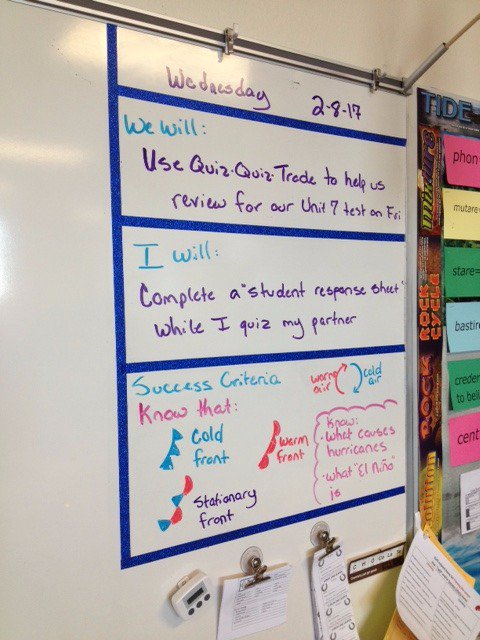 Wednesday 2-8-17
We Will:
Use Quiz-Quiz-Trade to help us
review for our Unit 7 test on Fri
I Will:
Complete a "student response sheet"
while I quiz my partner
Success Criteria
Know that:
warm
air
cold
air
Cold
front
Warm
front
Stationary
front
Know:
·what causes
hurricanes
·what "El Niño"
is
TIDE
mixture
ROCK
CYCLE
ROCK
phon
mutare=
stare=
bastir
creden
to beli
cent